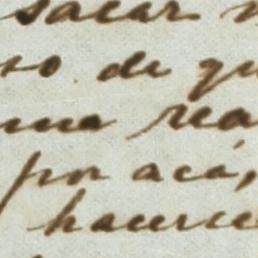 sacar
so de qu
una rea
por acá,
hacerce